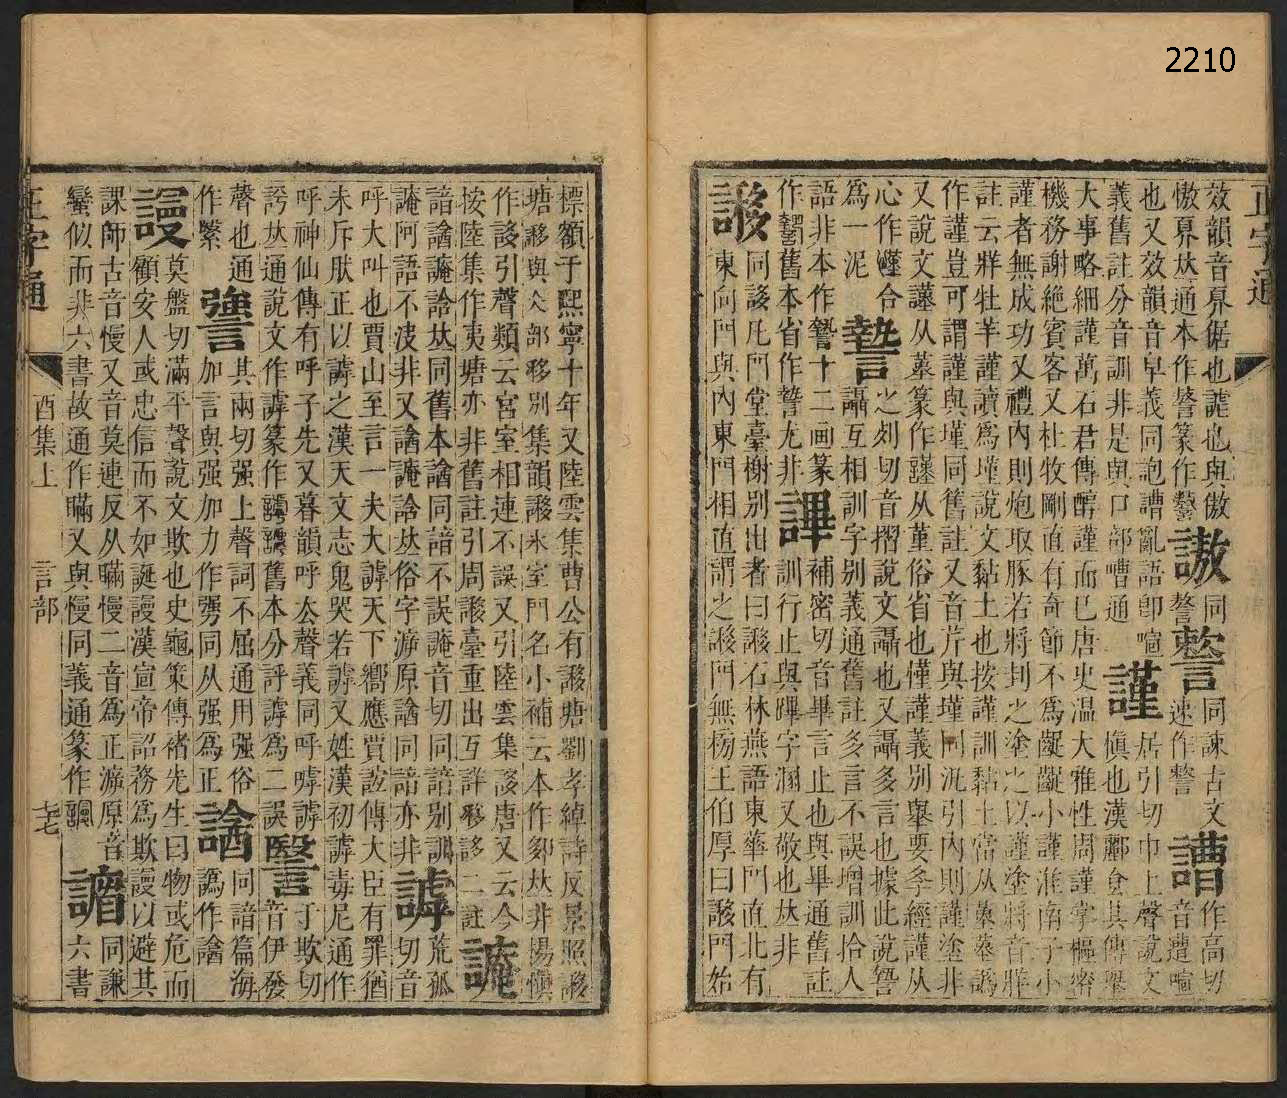 2210
正字通
效韻音昦倨也謔也與傲
慠昦𠀤通本作謷篆作𧫒謸同謷𧫒同諫古文
也又效韻音阜義同訑譄亂語卽喧速作謷譄音遭喧
義舊註分音訓非是與口部嘈通謹居引切巾上聲說文
大事略細謹萬石君傳醇謹而已唐史温大雅性周謹掌樞密
機務謝絶賓客又杜牧剛直有奇節不爲齪齪小謹淮南子小
謹者無成功又禮內則炮取豚若將刲之塗之以謹塗將音牂
註云牂牡羊謹讀爲墐說文黏土也按謹訓黏土當从堇墓譌
作謹豈可謂謹與墐同舊註又音芹與墐同汎引內則謹塗非
又說文謹从堇篆作謹从堇俗省也懂謹義別舉要孝經謹从
心作懂合之刿切音摺說文讘也又讘多言也據此說謺
爲一泥謺讘互相訓字別義通舊註多言不誤增訓拾人
語非本作謺十二画篆補密切音畢言止也與畢通舊註
作謺舊本省作謺尤非譁訓行止與蹕字溷又敬也𠀤非
謻同誃凡門堂臺榭别出者曰謻石林燕語東華門直北有
東向門與內東門相直謂之謻門無榜王伯厚曰謻門始
標額于熙寧十年又陸雲集曹公有謻塘劉孝綽詩反景照謻
塘謻與火部移別集韻謻氷室門名小補云本作𨛌𠀤非楊慎
作誃引聲類云宮室相連不誤又引陸雲集誃唐又云今
按陸集作夷塘亦非舊註引周謻臺重出互詳移誃二註
諳諭諵諗𠀤同舊本諭同諳不誤諵音切同諳別訓
諵阿語不決非又諭諵諗𠀤俗字㴑原諭同諳亦非謼荒孤切音
呼大叫也賈山至言一夫大謼天下嚮應賈誼傳大臣有罪猶
未斥肰正以謼之漢天文志鬼哭若謼又姓漢初謼毒尼通作
呼神仙傳有呼子先又暮韻呼去聲義同呼嘑謼于歔切
謣𠀤通說文作謼篆作舊本分評謼爲二誤毉音伊發
聲也通其兩切强上聲詞不屈通用强俗
作繄謽加言與强加力作勥同从强爲正諭同諳篇海譌作諭
謾莫盤切滿平聲說文欺也史龜策傳褚先生曰物或危而
顧安人或忠信而不如誕謾漢宣帝詔務爲欺謾以避其
課師古音慢又音莫連反从瞞慢二音爲正㴑原音
蠻似而非六書故通作瞞又與慢同義通篆作謾同謙六書
正字通
酉集上
言部
七七